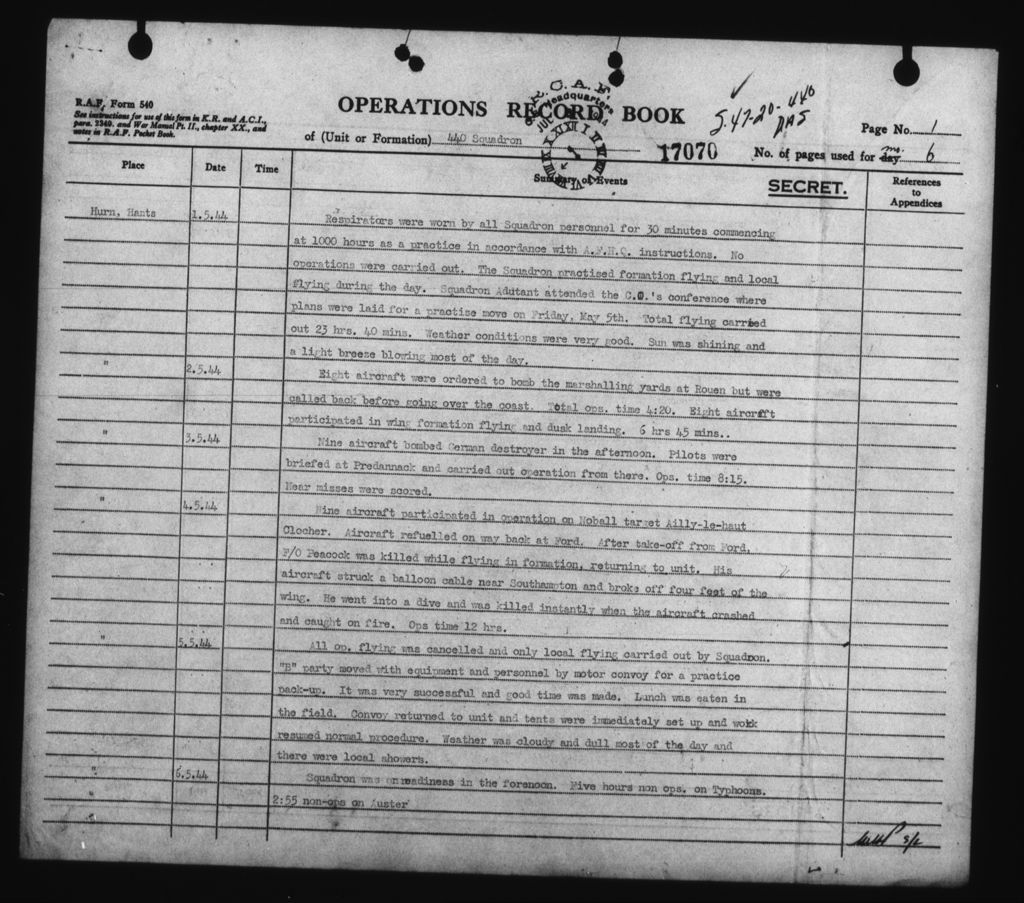 R.A.F. Form 540
See instructions for use of this form in K.R. and A.C.I.,
para. 2349, and War Manual Pt. II., chapter XX., and
notes in R.A.F. Pocket Book.
OPERATIONS RECORD BOOK
of (Unit or Formation) 440 Squadron
R.C.A.F.
Headquarters
17070
S.47-20-440
DAS
Page No. 1
No. of pages used for day mo. 6
Summary of Events
SECRET.
Place Date Time References
to
Appendices
Hurn, Hants 1.5.44 Respirators were worn by all Squadron personnel for 30 minutes commencing
at 1000 hours as a practice in accordance with A.F.H.Q. instructions. No
operations were carried out. The Squadron practised formation flying and local
flying during the day. Squadron Adutant attended the C.O.'s conference where
plans were laid for a practise move on Friday, May 5th. Total flying carried
out 23 hrs. 40 mins. Weather conditions were very good. Sun was shining and
a light breeze blowing most of the day.
" 2.5.44 Eight aircraft were ordered to bomb the marshalling yards at Rouen but were
called back before going over the coast. Total ops. time 4:20. Eight aircraft
participated in wing formation flying and dusk landing. 6 hrs 45 mins..
" 3.5.44 Nine aircraft bombed German destroyer in the afternoon. Pilots were
briefed at Predannack and carried out operation from there. Ops. time 8:15.
Near misses were scored.
" 4.5.44 Nine aircraft participated in operation on Noball target Ailly-le-haut
Clocher. Aircraft refuelled on way back at Ford. After take-off from Ford,
F/O Peacock was killed while flying in formation, returning to unit. His
aircraft struck a balloon cable near Southampton and broke off four feet of the
wing. He went into a dive and was killed instantly when the aircraft crashed
and caught on fire. Ops time 12 hrs.
" 5.5.44 All op. flying was cancelled and only local flying carried out by Squadron.
"B" party moved with equipment and personnel by motor convoy for a practice
pack-up. It was very successful and good time was made. Lunch was eaten in
the field. Convoy returned to unit and tents were immediately set up and work
resumed normal procedure. Weather was cloudy and dull most of the day and
there were local showers.
" 6.5.44 Squadron was on readiness in the forenoon. Five hours non ops. on Typhoons.
" 2:55 non-ops on Auster